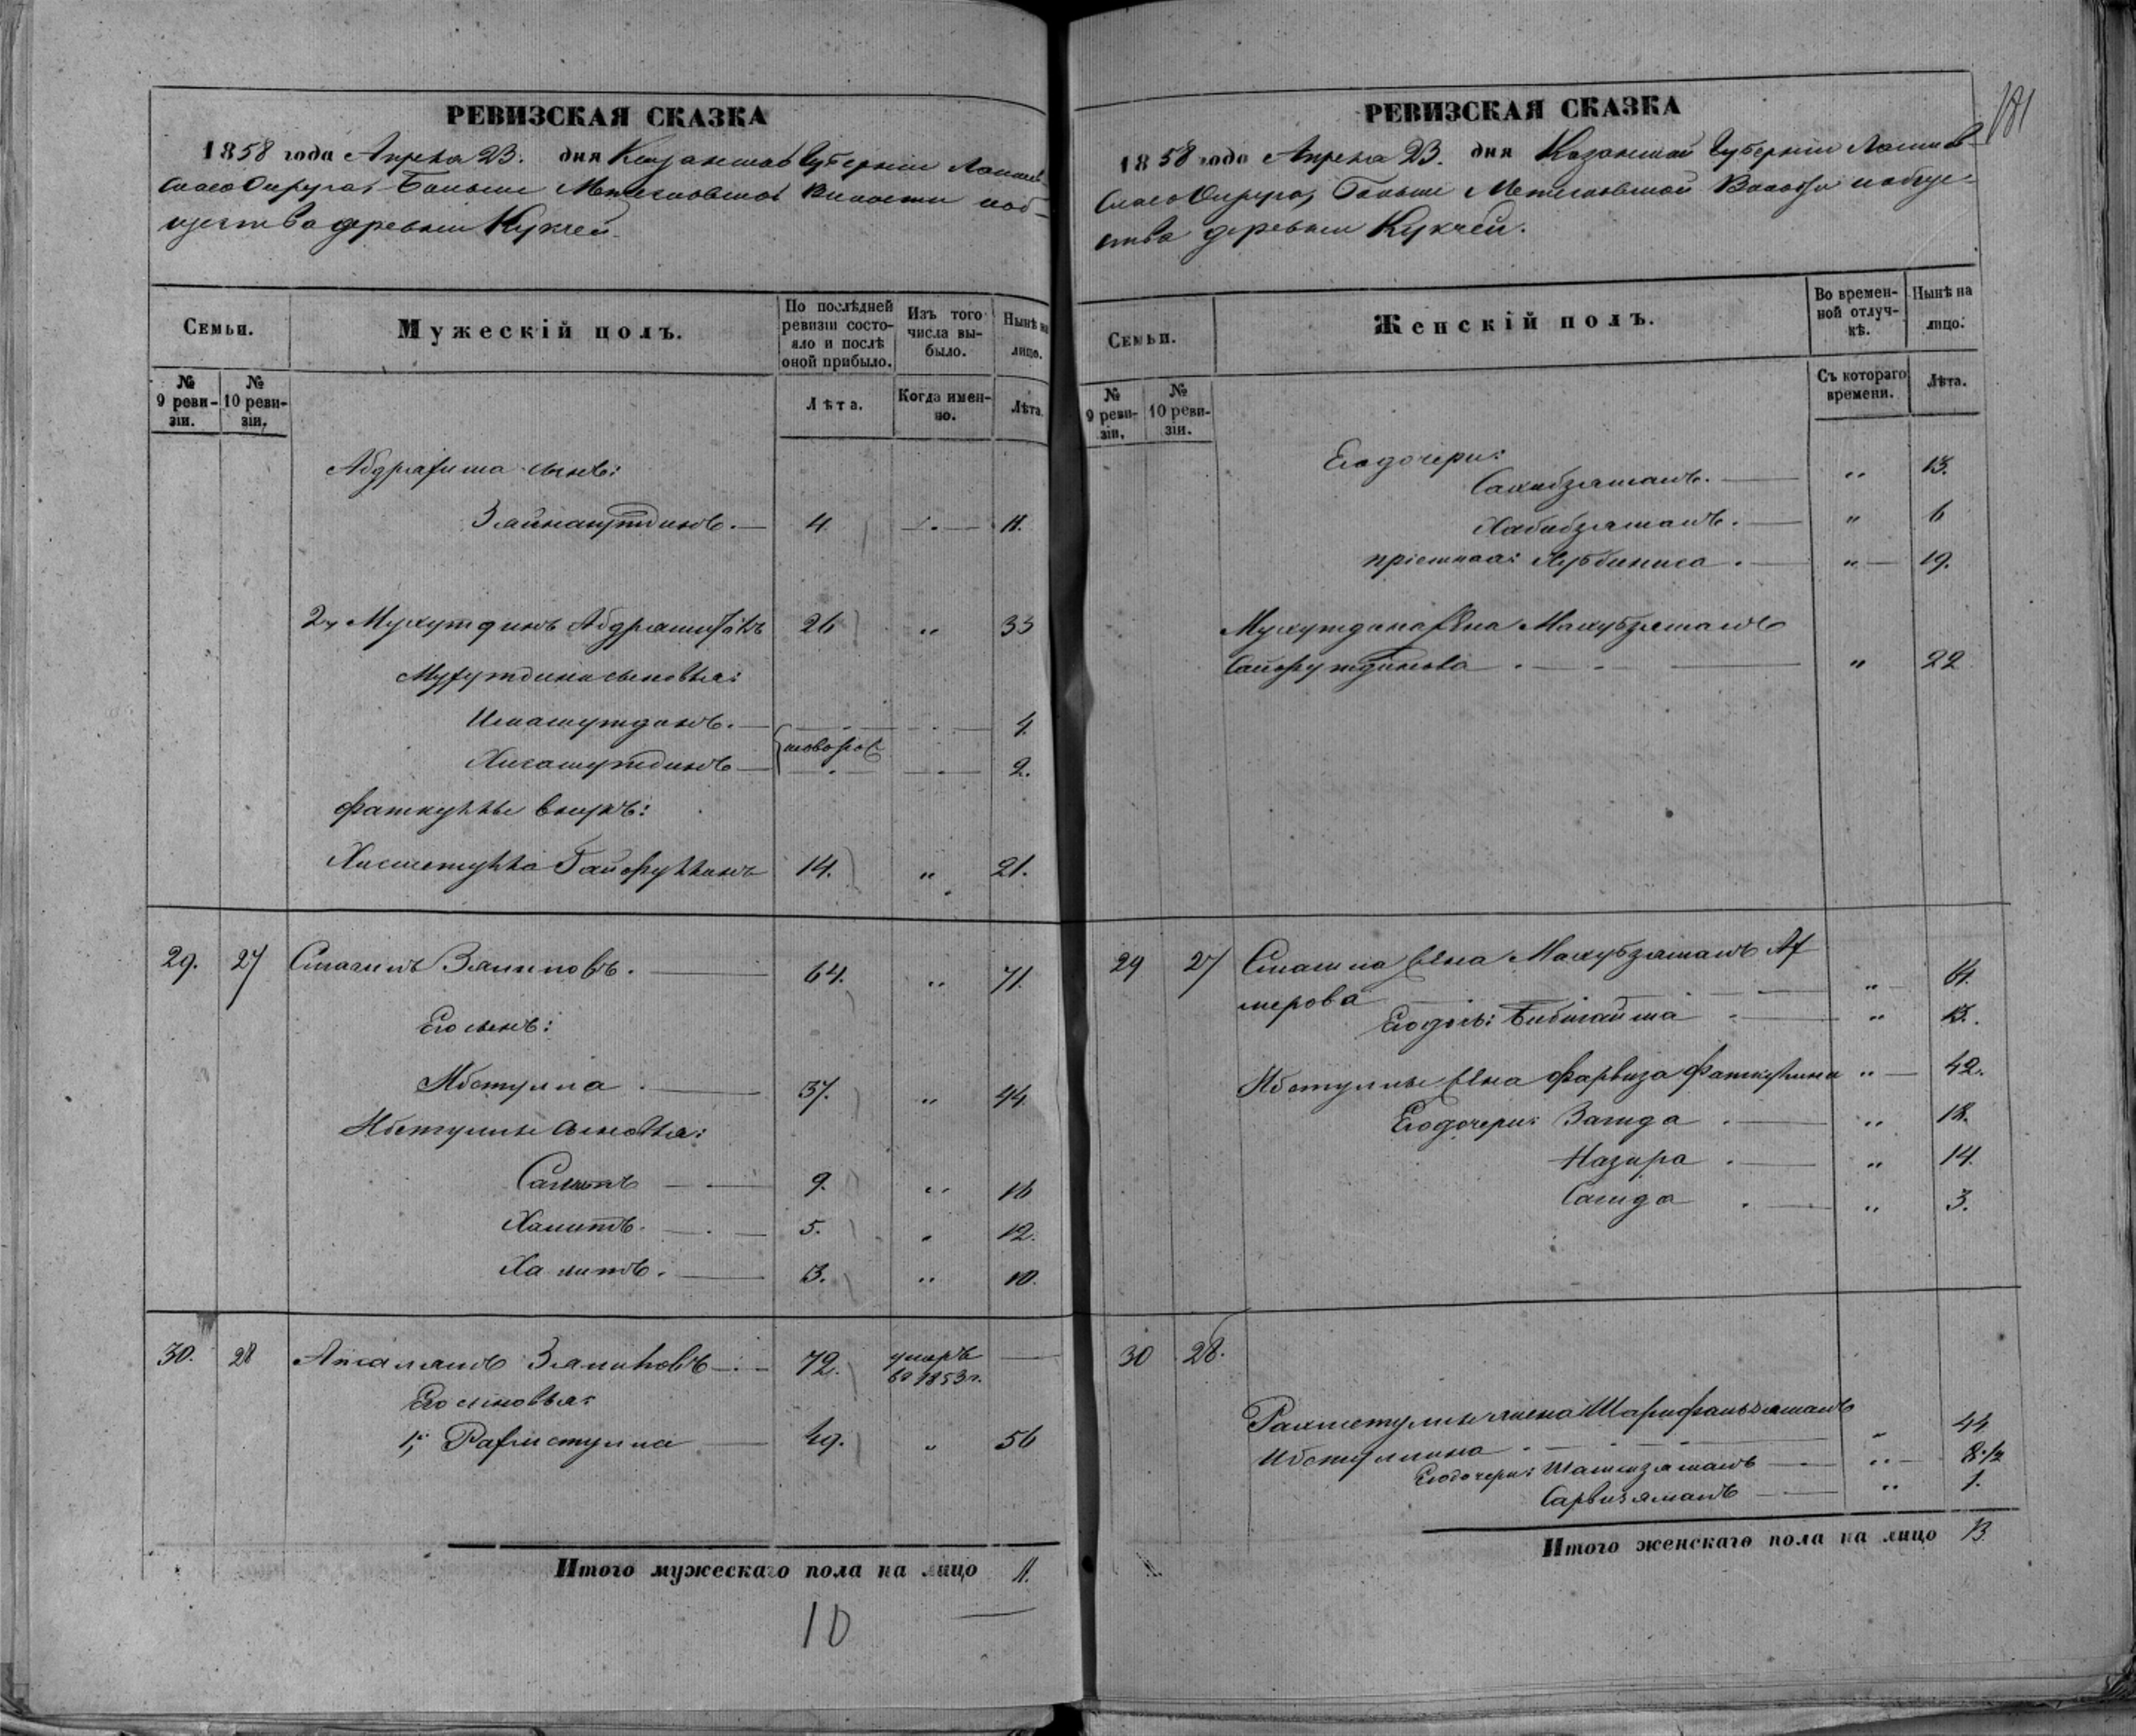 РЕВИЗСКАЯ СКАЗКА
1858 года Апреля 23. дня Казанской Губернiи Лаишев-
скаго Округа, Больше Метесковской Волости и об-
щества деревни Кукчей
Семьи.
Мужескiй полъ.
По послѣдней ревизiи состояло и послѣ оной прибыло.
Изъ того числа выбыло.
Нынѣ на лицо.
№ 9 ревизiи.
№ 10 ревизiи.
Лѣта.
Когда именно.
Лѣта.
Абдрахима сынъ:
Зайнанутдинъ. 4 11.
2, Мухутдинъ Абдрашитовъ 26 „ 33
Мухутдина сыновья:
Имамутдинъ. 4.
новорож
Хисамутдинъ 2.
Фаткуллы внукъ:
Хисметулла Гайфуллинъ 14. „ 21.
29. 27 Смагилъ Замиловъ. 64. „ 71.
Его сынъ:
Ибетулла 37. „ 44
Ибетуллы сыновья:
9. „ 16
Хамитъ. 5. „ 12.
Халитъ. 3. „ 10.
30. 28 Апсалямъ 72. умеръ въ 1853 г.
Его сыновья:
1, Рахметулла 49. „ 56
Итого мужескаго пола на лицо 11.
10
181
РЕВИЗСКАЯ СКАЗКА
1858 года Апреля 23. дня Казанской Губернiи Лаишев-
скаго Округа, Больше Метесковской Волости и обще-
ства деревни Кукчей.
Семьи.
Женскiй полъ.
Во временной отлучкѣ.
Нынѣ на лицо.
№ 9 ревизiи.
№ 10 ревизiи.
Съ котораго времени.
Лѣта.
Его дочери:
Сахибзямалъ. „ 13.
Хабибзямалъ. „ 6
прiемная: „ 19.
Мухутдина жена Махубзямалъ
Сайфутдинова „ 22
29 27 Смагила жена Махубзямалъ Ах
мерова „ 61.
Его дочь: Бибигайша „ 13.
Ибетуллы жена Фарвиза Фаткуллина „ 42.
Его дочери: Загида „ 18.
Назира „ 14.
Сагида „ 3.
30 28.
Рахметуллы жена Шарифаньзямалъ
Ибетуллина „ 44
Его дочери: Шамсизямалъ „ 8 1/2
Сарвизямалъ „ 1.
Итого женскаго пола на лицо 13.